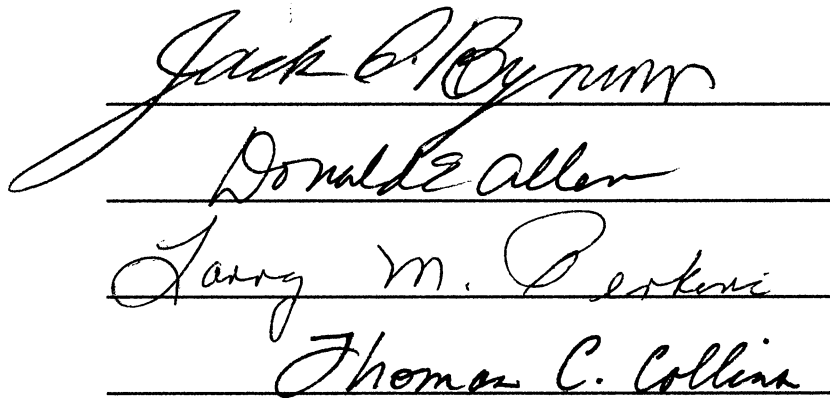 Jack E. Bynum
Donald E Allen
Larry M. Perkins
Thomas C. Collins